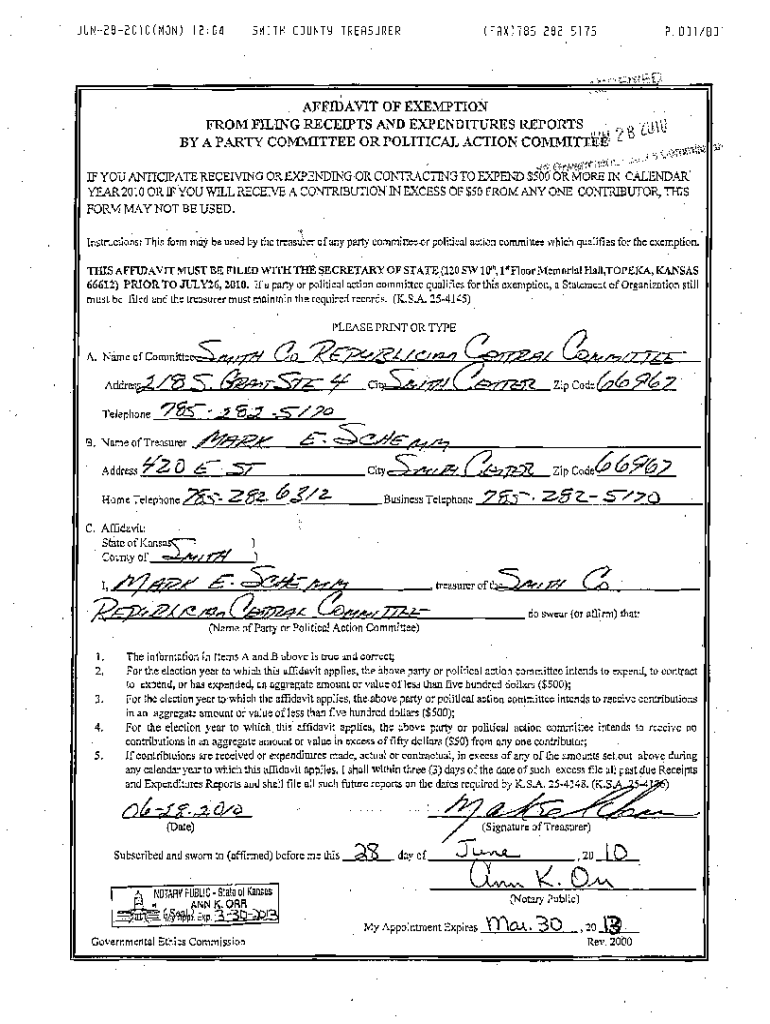 JUN-28-2010(MON) 12:04 SMITH COUNTY TREASURER (FAX)785 282 5175 P.001/001
AFFIDAVIT OF EXEMPTION
FROM FILING RECEIPTS AND EXPENDITURES REPORTS
BY A PARTY COMMITTEE OR POLITICAL ACTION COMMITTEE
28 2010
IF YOU ANTICIPATE RECEIVING OR EXPENDING OR CONTRACTING TO EXPEND $500 OR MORE IN CALENDAR
YEAR 2010 OR IF YOU WILL RECEIVE A CONTRIBUTION IN EXCESS OF $50 FROM ANY ONE CONTRIBUTOR, THIS
FORM MAY NOT BE USED.
Instructions: This form may be used by the treasurer of any party committee or political action committee which qualifies for the exemption.
THIS AFFIDAVIT MUST BE FILED WITH THE SECRETARY OF STATE (120 SW 10th, 1st Floor Memorial Hall, TOPEKA, KANSAS
66612) PRIOR TO JULY 26, 2010. If a party or political action committee qualifies for this exemption, a Statement of Organization still
must be filed and the treasurer must maintain the required records. (K.S.A. 25-4145)
PLEASE PRINT OR TYPE
A. Name of Committee SMITH CO REPUBLICIAN CENTRAL COMMITTEE
Address 218 S. GRANT STE 4 City SMITH CENTER Zip Code 66967
Telephone 785-282-5170
B. Name of Treasurer MARK E. SCHEMM
Address 420 E ST City SMITH CENTER Zip Code 66967
Home Telephone 785-282 6312 Business Telephone 785-282-5170
C. Affidavit:
State of Kansas )
County of SMITH )
I, MARK E. SCHEMM, treasurer of the SMITH CO.
REPUBLICIAN CENTRAL COMMITTEE do swear (or affirm) that:
(Name of Party or Political Action Committee)
1. The information in Items A and B above is true and correct;
2. For the election year to which this affidavit applies, the above party or political action committee intends to expend, to contract
to expend, or has expended, an aggregate amount or value of less than five hundred dollars ($500);
3. For the election year to which the affidavit applies, the above party or political action committee intends to receive contributions
in an aggregate amount or value of less than five hundred dollars ($500);
4. For the election year to which this affidavit applies, the above party or political action committee intends to receive no
contributions in an aggregate amount or value in excess of fifty dollars ($50) from any one contributor;
5. If contributions are received or expenditures made, actual or contractual, in excess of any of the amounts set out above during
any calendar year to which this affidavit applies, I shall within three (3) days of the date of such excess file all past due Receipts
and Expenditures Reports and shall file all such future reports on the dates required by K.S.A. 25-4148. (K.S.A. 25-4146)
06-28-2010
(Date) (Signature of Treasurer)
Subscribed and sworn to (affirmed) before me this 28 day of June, 2010
Ann K. Orr
(Notary Public)
NOTARY PUBLIC - State of Kansas
ANN K. ORR
My Appt. Exp. 3-30-2013
My Appointment Expires Mar. 30, 2013
Governmental Ethics Commission Rev. 2000